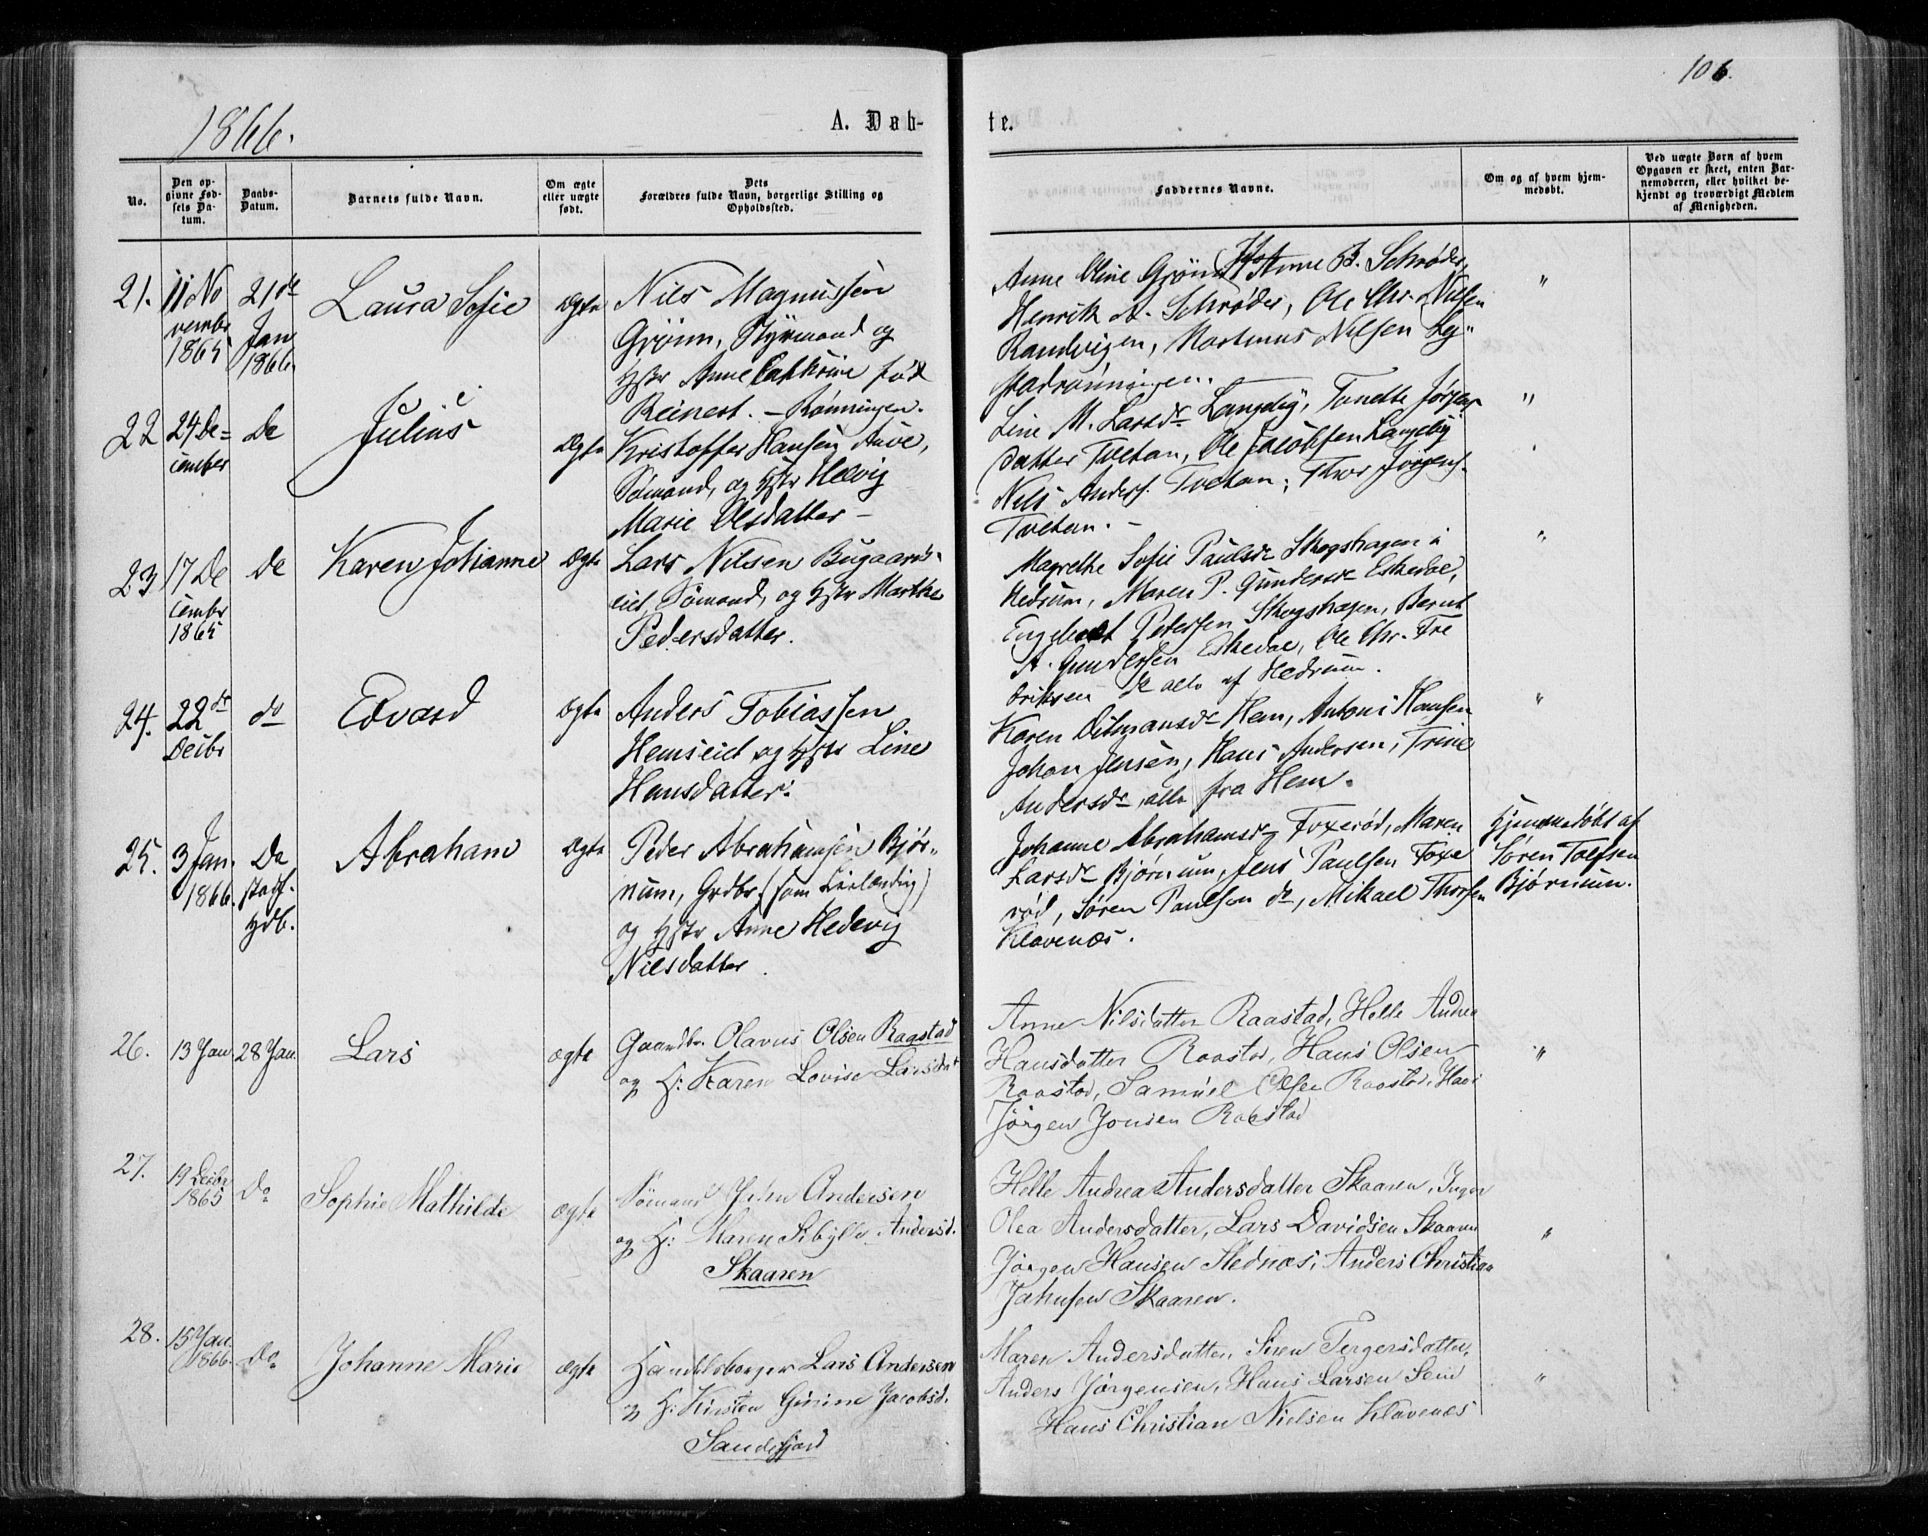 1866.
A. Døb-
te.
106.
No.
Den op-
givne Fød-
sels Da-
tum.
Daabs-
Datum.
Barnets fulde Navn.
Om ægte
eller uægte
født.
Dets
Forældres fulde Navn, borgerlige Stilling og
Opholdssted.
Faddernes Navne.
Om og af hvem hjem-
medøbt.
Ved uægte Børn af hvem
Opgaven er skeet, enten Bar-
nemoderen, eller hvilket be-
kjendt og troværdigt Medlem
af Menigheden.
21.
11 No
vembr
1865
21de
Jan
1866.
Laura Sofie
ægte
Nils Magnussen
Grønn, Styrmand og
Hstr Anne Cathrine fød
Reinert. – Rønningen.
Anne Oline Grønn, Anne B. Schrøder,
Henrik A. Schrøder, Ole Chr. Nilsen
Randvigen, Martinus Nilsen Ly-
stadrønningen.
"
22
24 De-
cember
Do
Julius
Ægte
Kristoffer Hansen Aave,
Sømand, og Hstr Helvig
Marie Olsdatter –
Line M. Larsdr Langeby, Tonette Jørgens
datter Tvetan, Ole Jacobsen Langeby
Nils Anders. Tvetan, Thor Jørgens.
Tvetan. –
"
23
17 De
cembr
1865
Do
Karen Johanne
Ægte
Lars Nilsen Bugaards-
eiet, Sømand, og Hstr Marthe
Pedersdatter.
Magrethe Sofie Paulsdr Skogshagen i
Hedrum, Maren P. Gundersdr Eskedal,
Engebret Pedersen Skogshagen, Bernt
A. Gundersen Eskedal, Ole Chr. Fre
driksen do alle af Hedrum.
"
24.
22de
Decbr
do
Edvard
Ægte
Anders Tobiassen
Hemseiet og Hstr Line
Hansdatter.
Karen Ditmansdr Hem, Antoni Hansen
Johan Jensen, Hans Andersen, Trine
Andersdr, alle fra Hem.
"
25.
3 Jan.
1866.
Do
stadf.
Hdb.
Abraham
Ægte
Peder Abrahamsen Bjør-
num, Grdbr,
og Hstr Anne Hedevig
Nilsdatter.
Johanne Abrahamsdr Foxerød, Maren
Larsdr Bjørnum, Jens Paulsen Foxe
rød, Søren Paulsen do, Mikael Thorsen
Klavenæs.
Hjemmedøbt af
Søren Tolfsen
Bjørnum.
26.
13 Jan
28 Jan.
Lars
ægte
Gaardbr. Olavus Olsen Raastad
og H: Karen Lovise Larsdat
Anne Nilsdatter Raastad, Helle Andrea
Hansdatter Raastad, Hans Olsen
Raastad, Samuel Olsen Raastad, Hans
Jørgen Jonsen Raastad
"
27.
19 Decbr
1865
Do
Sophie Mathilde
ægte
Sømand John Andersen
og H: Maren Sibylle Andersd.
Skaaren
Helle Andrea Andersdatter Skaaren, Inger
Olea Andersdatter, Lars Davidsen Skaaren
Jørgen Hansen Stednæs, Anders Christian
Johnsen Skaaren.
"
28.
15 Jan
1866.
Do
Johanne Marie
ægte
Handelsborger Lars Andersen
og H: Kirsten Gurine Jacobsd.
Sandefjord
Maren Andersdatter, Siren Tergersdatter,
Anders Jørgensen, Hans Larsen Sem
Hans Christian Nielsen Klavenæs
"